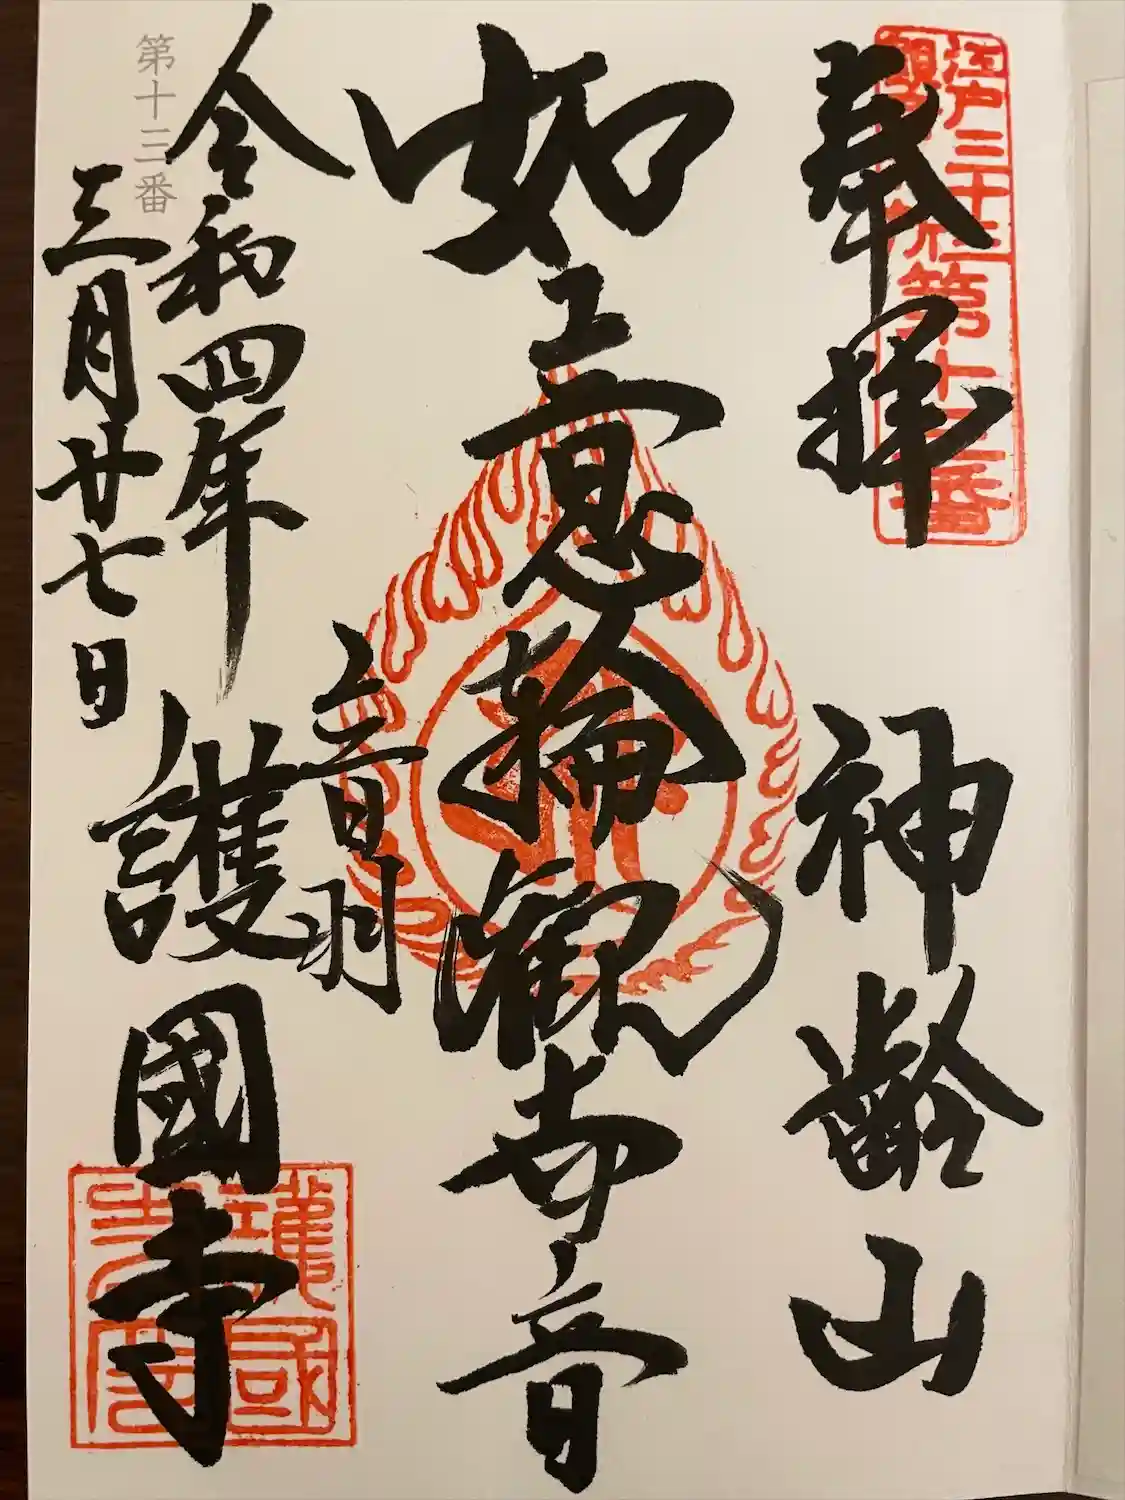 江戸三十三
観音札所第十三番
奉拝
神齢山
如意輪観世音
音羽
護國寺
令和四年
三月廿七日
第十三番